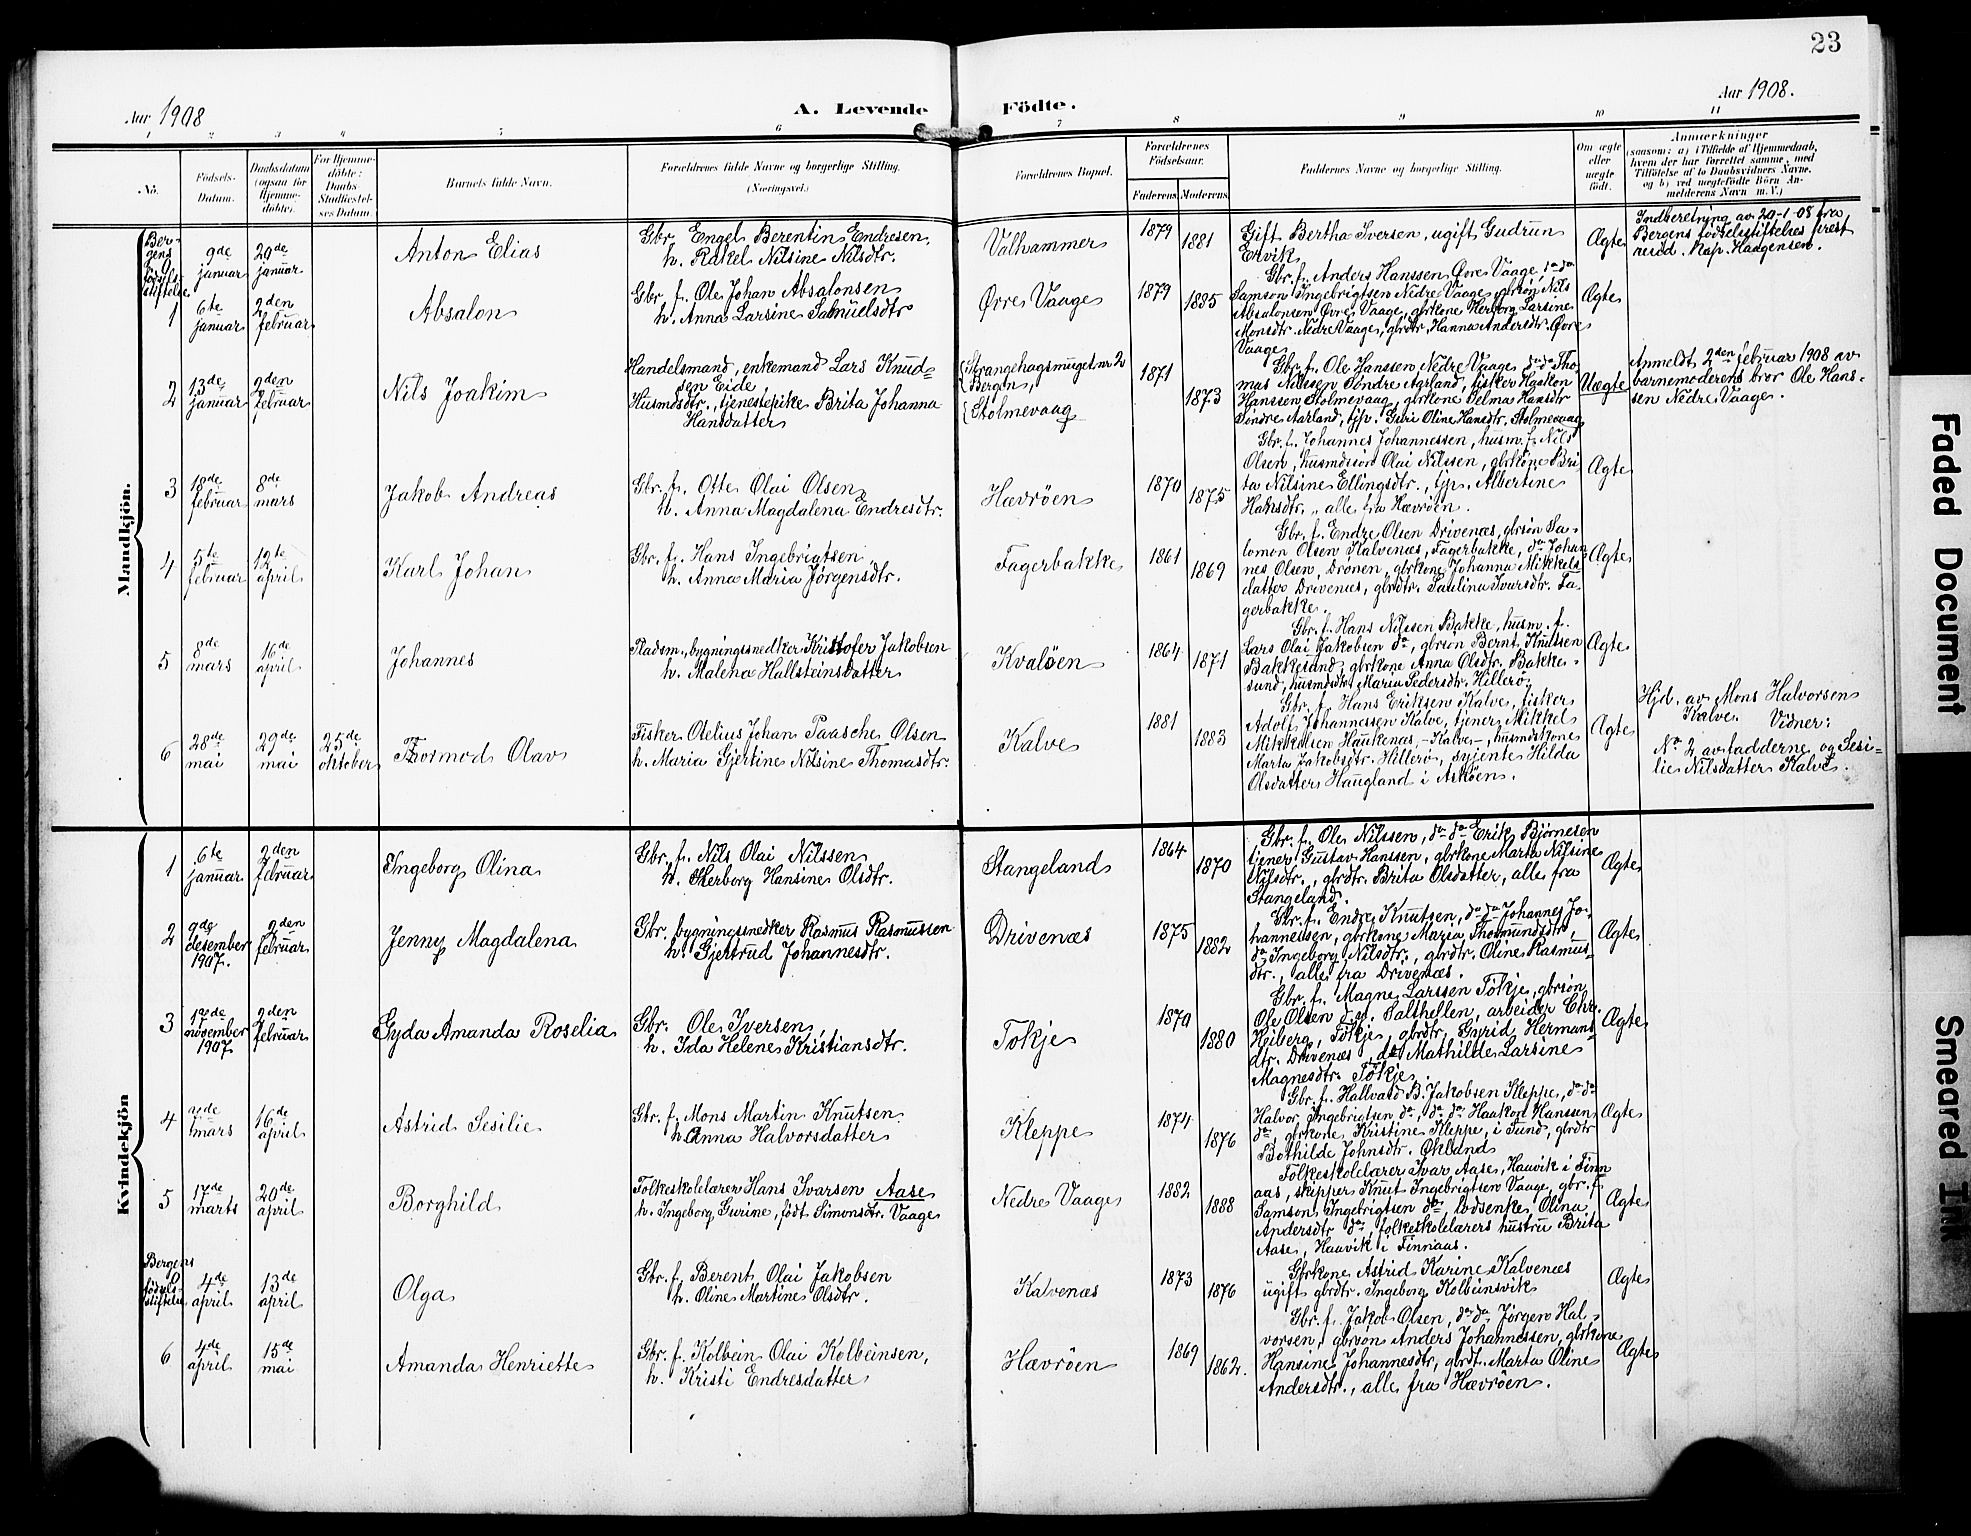 23
Aar 1908
A. Levende Födte.
Aar 1908.
1 2 3 4 5 6 7 8 9 10 11
No.
Födsels-
Datum.
Daabsdatum
(ogsaa for
Hjemme-
döbte).
For Hjemme-
döbte:
Daabs
Stadfæstel-
ses Datum.
Barnets fulde Navn.
Forældrenes fulde Navne og borgerlige Stilling.
(Næringsvei.)
Forældrenes Bopæl.
Forældrenes
Födselsaar.
Faderens. Moderens.
Faddernes Navne og borgerlige Stilling.
Om ægte
eller
uægte
födt.
Anmærkninger
(saasom: a) i Tilfælde af Hjemmedaab,
hvem der har forrettet samme, med
Tilföielse af to Daabsvidners Navne,
og b) ved uægtefödte Börn An-
melderens Navn m. V.)
Mandkjön.
Ber-
gens
födsels-
stiftelse
9de
januar
20de
januar
Anton Elias
Gbr. Engel Berentin Endresen,
h. Rakel Nilsine Nilsdtr.
Valhammer
1879
1881
Gift Bertha Iversen, ugift Gudrun
Ervik
Ægte
Indberetning av 20-1-08 fra
Bergens födselsstiftelses prest
resid. kap. Haagensen.
1
6te
januar
2den
februar
Absalon
Gbr. f. Ole Johan Absalonsen
h. Anna Larsine Samuelsdtr
Øvre Vaage
1879
1885
Gbr. f. Anders Hanssen Øvre Vaage, do do
Samson Ingebrigtsen Nedre Vaage, gbrsøn Nils
Absalonsen Øvre Vaage, gbrkone Herborg Larsine
Monsdtr. Nedre Vaage, gbrdtr. Hanna Andersdtr. Øvre
Vaage
Ægte
2
13de
januar
2den
februar
Nils Joakim
Handelsmand, enkemand Lars Knud-
sen Eide
Husmdsdtr., tjenestepike Brita Johanna
Hansdatter
Strangehagsmuget nr 2
Bergen,
Stolmevaag
1871
1873
Gbr. f. Ole Hanssen Nedre Vaage, do do Tho-
mas Nilssen Søndre Aarland, fisker Haakon
Hanssen Stolmevaag, gbrkone Selma Hansdtr
Søndre Aarland, tjp. Guri Oline Hansdtr. Stolmevaag
Uægte
Anmeldt 2den februar 1908 av
barnemoderens bror Ole Hans-
sen Nedre Vaage.
3
18de
februar
8de
mars
Jakob Andreas
Gbr. f. Otte Olai Olsen
h. Anna Magdalena Endresdtr.
Hævrøen
1870
1875
Gbr. f. Johannes Johannessen, husm. f. Nils
Olsen, husmdssøn Olai Nilssen, gbrkone Bri
ta Nilsine Ellingsdtr., tjp. Albertine
Hansdtr., alle fra Hævrøen.
Ægte
4
5te
februar
12te
april
Karl Johan
Gbr. f. Hans Ingebrigtsen
h. Anna Maria Jørgensdtr.
Fagerbakke
1861
1869
Gbr. f. Endre Olsen Drivenæs, gbrsøn Sa-
lomon Olsen Kalvenæs, Fagerbakke, do Johan
nes Olsen, Drønen, gbrkone Johanna Mikkels
datter Drivenæs, gbrdtr. Paulina Ivarsdtr. Fa-
gerbakke.
Ægte
5
8de
mars
16de
april
Johannes
Pladsm., bygningssnedker Kristofer Jakobsen
h. Malena Hallsteinsdatter
Kvaløen
1864
1871
Gbr. f. Hans Nilssen Bakke, husm. f.
Lars Olai Jakobsen do, gbrsøn Bernt Knutssen
Bakkesund, gbrkone Anna Olsdtr. Bakke-
sund, husmdsdtr. Maria Pedersdtr. Hillerø.
Ægte
6
28de
mai
29de
mai
25de
oktober
Thormod Olav
Fisker Otelius Johan Paasche Olsen
h. Maria Gjertine Nilsine Thomasdtr.
Kalve
1881
1883
Gbr. f. Hans Eriksen Kalve, fisker
Adolf Johannessen Kalve, tjener Mikkel
Mikkelsen Haukenæs, -Kalve-, husmdskone
Marta Jakobsdtr. Hillerø, syjente Hilda
Olsdatter Haugland i Askøen.
Ægte
Hjd. av Mons Halvorsen
Kalve. Vidner:
No 2 av fadderne og Sesi-
lie Nilsdatter Kalve.
Kvindekjön
1
6te
januar
2den
februar
Ingeborg Olina
Gbr. f. Nils Olai Nilssen
h. Herborg Hansine Olsdtr.
Stangeland
1864
1870
Gbr. f. Ole Nilssen, do do Erik Bjørnesen
tjener Gustav Hanssen, gbrkone Marta Nilsine
Nilsdtr., gbrdtr. Brita Olsdatter, alle fra
Stangeland.
Ægte
2
9de
desember
1907.
2den
februar
Jenny Magdalena
Gbr. bygningssnedker Rasmus Rasmussen
h. Gjertrud Johannesdtr.
Drivenæs
1875
1882
Gbr. f. Endre Knutsen, do do Johannes Jo-
hannessen, gbrkone Maria Thormundsdtr,
do Ingeborg Nilsdtr., gbrdtr. Oline Rasmus-
dtr., alle fra Drivenæs.
Ægte
3
november
1907
2den
februar
Gyda Amanda Roselia
Gbr. Ole Iversen
h. Ida Helene Kristiansdtr.
Tøkje
1879
1880
Gbr. f. Magne Larssen Tøkje, gbrsøn
Ole Olsen d.y. Salthellen, arbeider Chr.
Heiberg, Tøkje, gbrdtr. Gyrid Hermans-
dtr. Drivenæs, do Mathilde Larsine
Magnesdtr. Tøkje.
Ægte
4
mars
16de
april
Astrid Sesilie
Gbr. f. Mons Martin Knutsen
h. Anna Halvorsdatter
Kleppe
1874
1876
Gbr. f. Hallvard B. Jakobsen Kleppe, do do
Halvor Ingebrigtsen do, do do Haakon Hanssen
do, gbrkone Kristine Kleppe, i Sund, gbrdtr
Bothilde Johnsdtr. Økland
Ægte
5
17de
marts
20de
april
Borghild
Folkeskolelærer Hans Ivarsen Aase
h. Ingeborg Gurine, født Simonsdtr. Vaage
Nedre Vaage
1882
1888
Folkeskolelærer Ivar Aase, Haavik i Finn
aas, skipper Knut Ingebrigtsen Vaage, gbr. f.
Samson Ingebrigtsen do, lodsenke Olina
Andersdtr do, folkeskolelærers hustru Brita
Aase, Haavik i Finnaas.
Ægte
Bergens
födsels-
stiftelse
4de
april
13de
april
Olga
Gbr. f. Berent Olai Jakobsen
h. Oline Martine Olsdtr.
Kalvenæs
1873
1876
Gbrkone Astrid Karine Kalvenæs
ugift gbrdtr. Ingeborg Kolbeinsvik
Ægte
6
4de
april
15de
mai
Amanda Henriette
Gbr. f. Kolbein Olai Kolbeinsen,
h. Kristi Endresdatter
Hævrøen
1869
1862.
Gbr. f. Jakob Olsen, do do Jørgen Hal-
vorsen, gbrsøn Anders Johannessen, gbrkone
Hansine Johannesdtr, gbrdt. Marta Oline
Andersdtr., alle fra Hævrøen.
Ægte
Faded Document
Smeared Ink